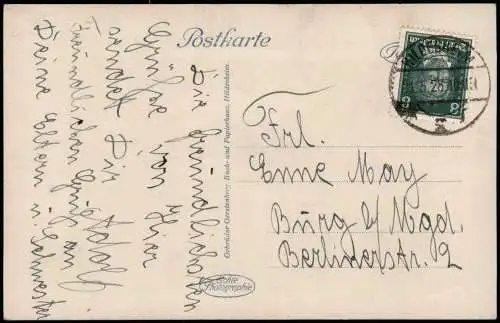 Postkarte
Die freundlichsten
Grüße von hier
sendet Dir
Adolf
Freundlichen Gruß an
Deine Eltern u. Schwester
Gebrüder Gerstenberg, Buch- und Papierhaus, Hildesheim.
Echte
Photographie
8 8
Frl.
Enne May
Burg b/Mgd.
Berlinerstr. 2